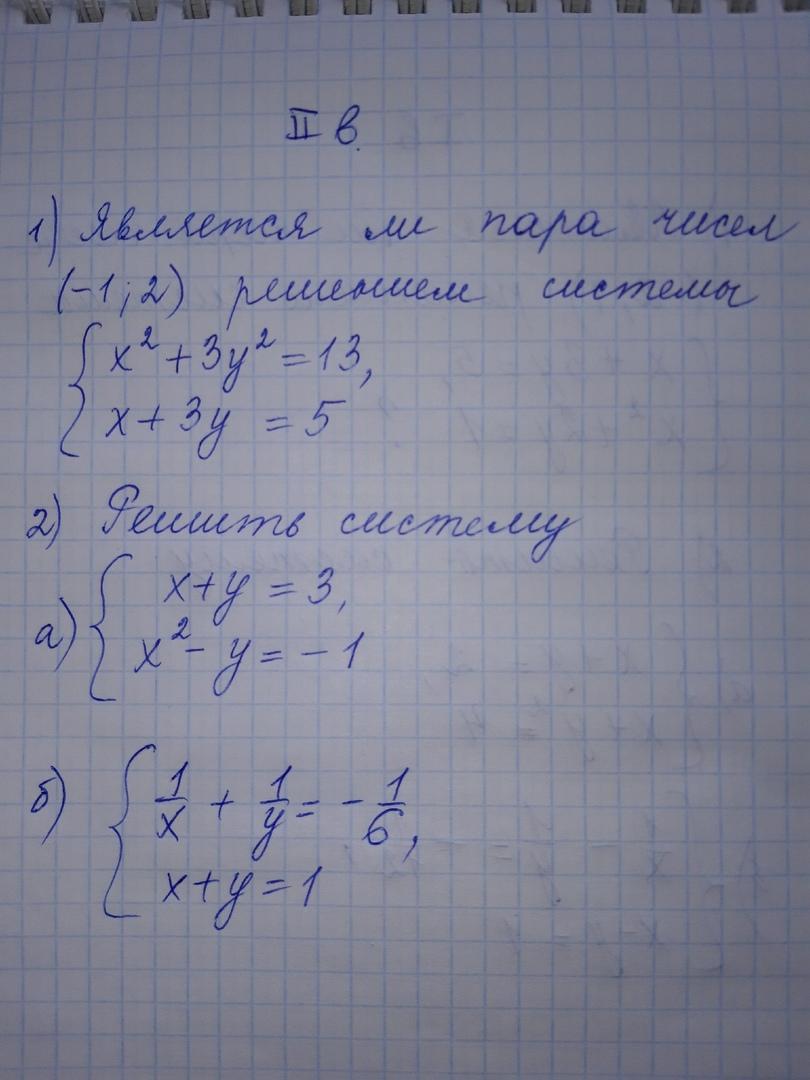 II в.
1) Является ли пара чисел
(-1; 2) решением системы
{ x² + 3y² = 13,
x + 3y = 5
2) Решить систему
а) { x + y = 3,
x² - y = -1
б) { 1/x + 1/y = - 1/6,
x + y = 1